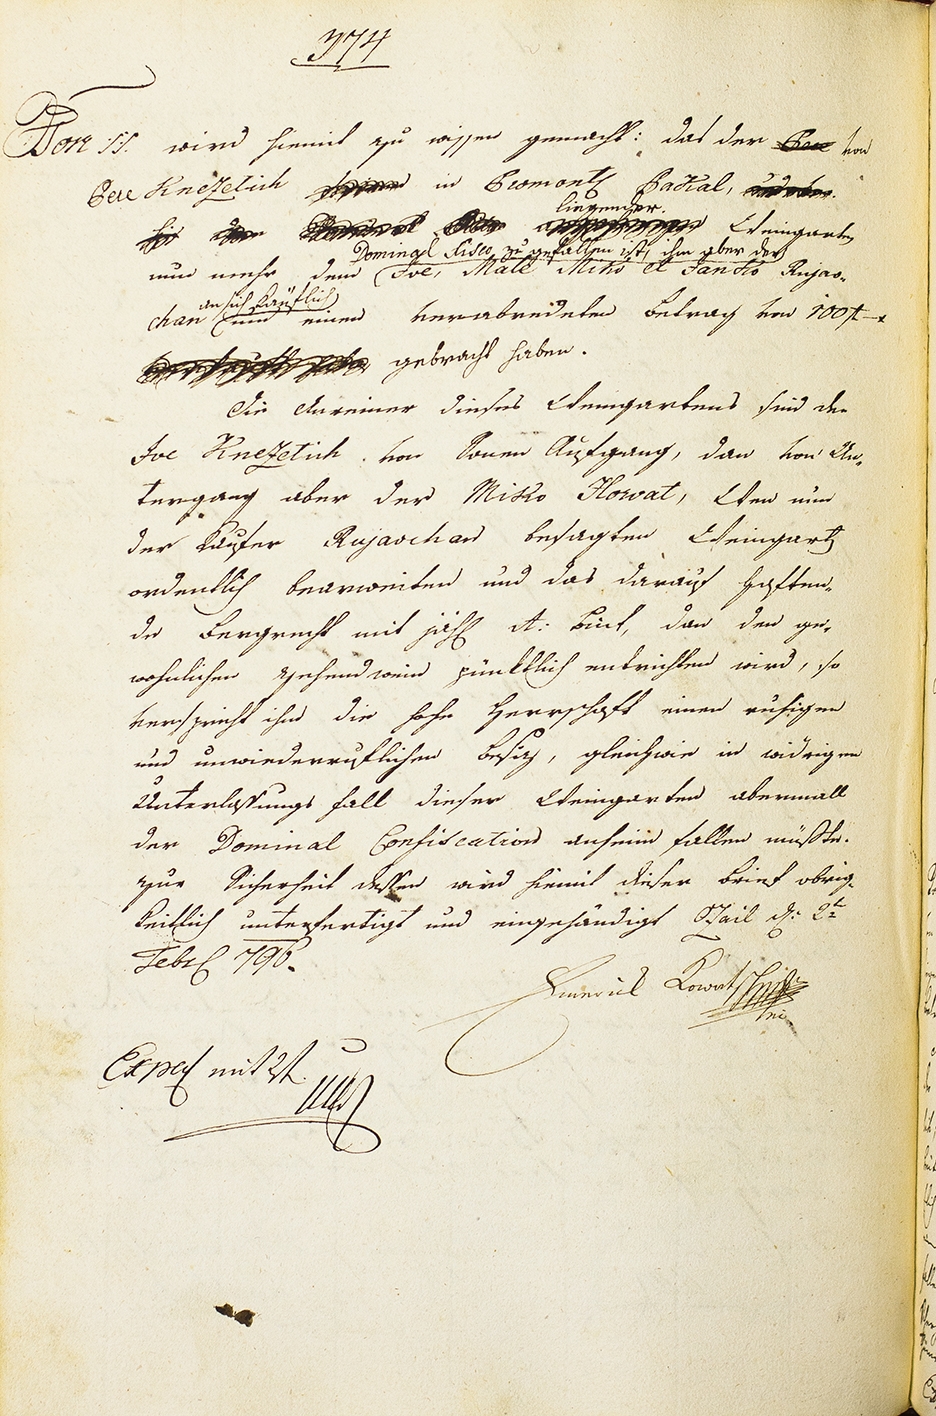 374
Von SS. wird hiemit zu wissen gemacht: das der Pere von
Pere Knezetich in Promont Pakal,
liegender
Weingarten
Dominal Fisco zu gefallen ist, ihm aber der
nun mehr dem Ive, Mate Miko et Janko Rujav-
an sich käuflich
chan um einen verabredeten Betrag von 100 f
gebracht haben.
Die Anreiner dieses Weingartens sind der
Ive Knezetich von Sonen Aufgang, dan von Un-
tergang aber der Miko Horvat, Wen nun
der Käufer Rujavchan besagten Weingart
ordentlich bearweiten und das darauf haften-
de Bergrecht mit jähl dan den ge-
wohnlichen zehend wein pünktlich entrichten wird, so
verspricht ihm die hohe Herrschaft einen ruhigen
und unwiederruflichen besiz, gleichwie in widrigen
Unterlassungs fall dieser Weingarten abermall
der Dominal Confiscation anheim fallen müßte.
zur Sicherheit dessen wird hiemit dieser brief obrig-
keitlich unterfertigt und eingehändigt d: 2t
Febr 796.
Emerich
Exped mit 2f